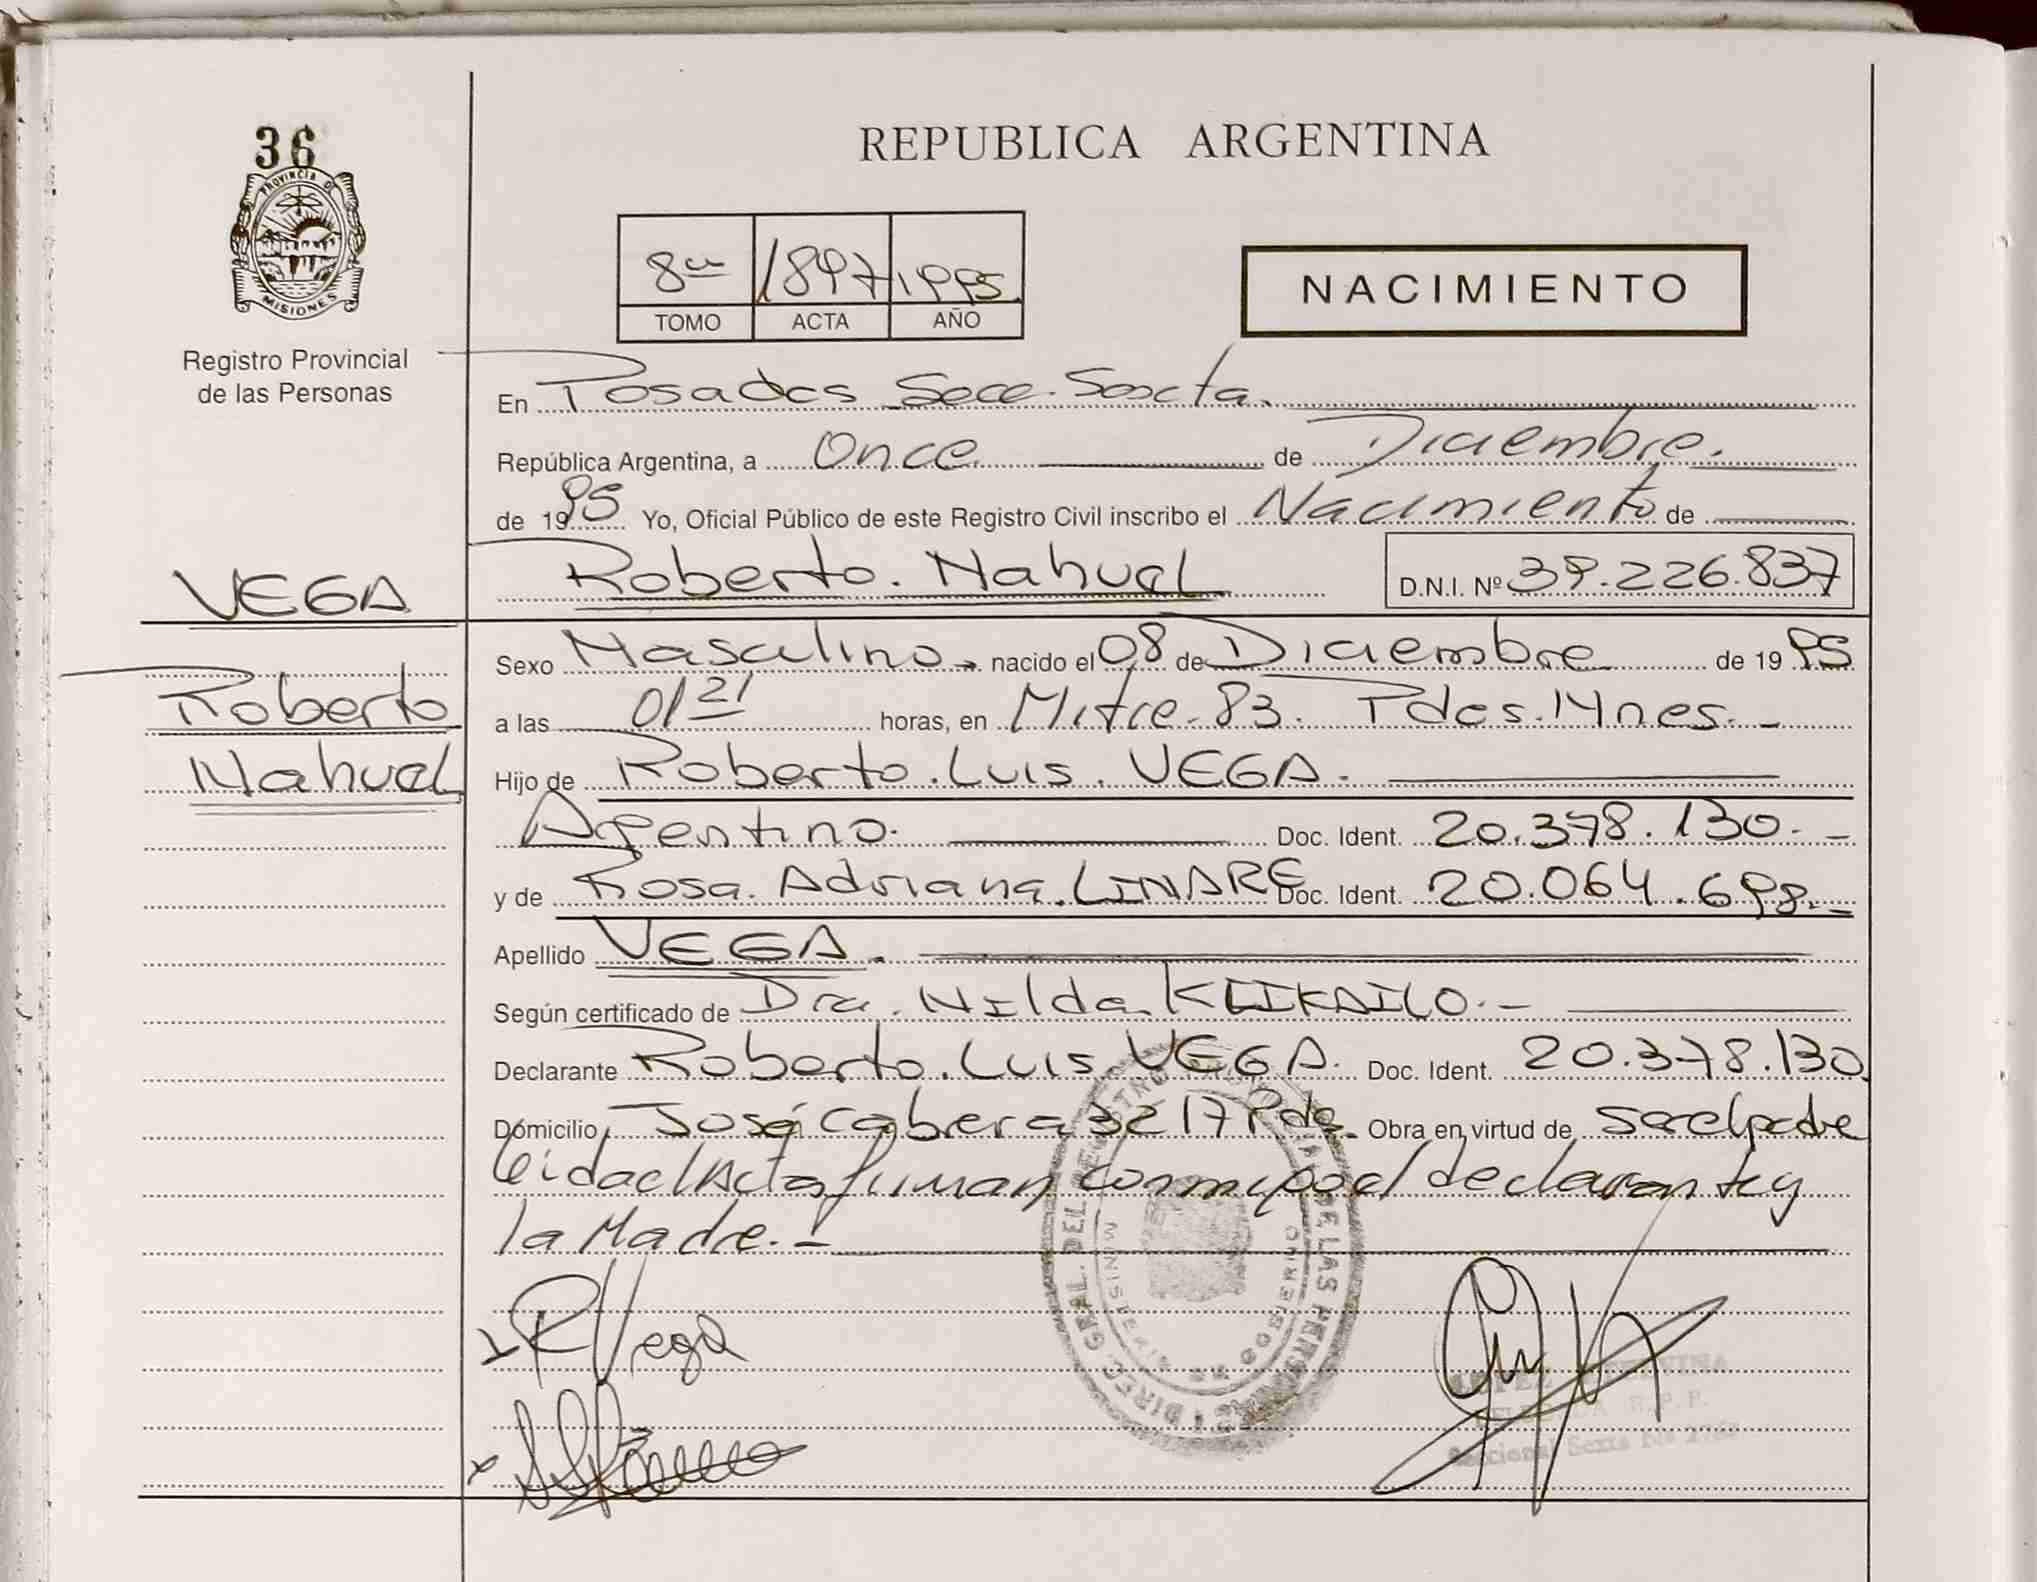 36
PROVINCIA D
MISIONES
Registro Provincial
de las Personas
REPUBLICA ARGENTINA
8va 1897 1995
TOMO ACTA AÑO
NACIMIENTO
En Posadas Secc. Sexta.
República Argentina, a Once de Diciembre.
de 1995 Yo, Oficial Público de este Registro Civil inscribo el Nacimiento de
VEGA Roberto. Nahuel D.N.I. Nº 39.226.837
Sexo Masculino nacido el 08 de Diciembre de 1995
Roberto a las 01 21 horas, en Mitre. 83. Pdas. Mnes. -
Nahuel Hijo de Roberto. Luis. VEGA.
Argentino. Doc. Ident. 20.378.130. -
y de Rosa. Adriana. LINARE Doc. Ident. 20.064.698. -
Apellido VEGA.
Según certificado de Dra. Nilda KLIKAILO. -
Declarante Roberto. Luis VEGA. Doc. Ident. 20.378.130.
Domicilio José Cabrera 3217 Pdas. Obra en virtud de ser el padre
leida el Acta firman conmigo el declarante y
la Madre. -
R Vega
DIREC. GRAL. DEL REGISTRO PROVINCIAL DE LAS PERSONAS
GOBIERNO
R.P.P.
Seccional Sexta